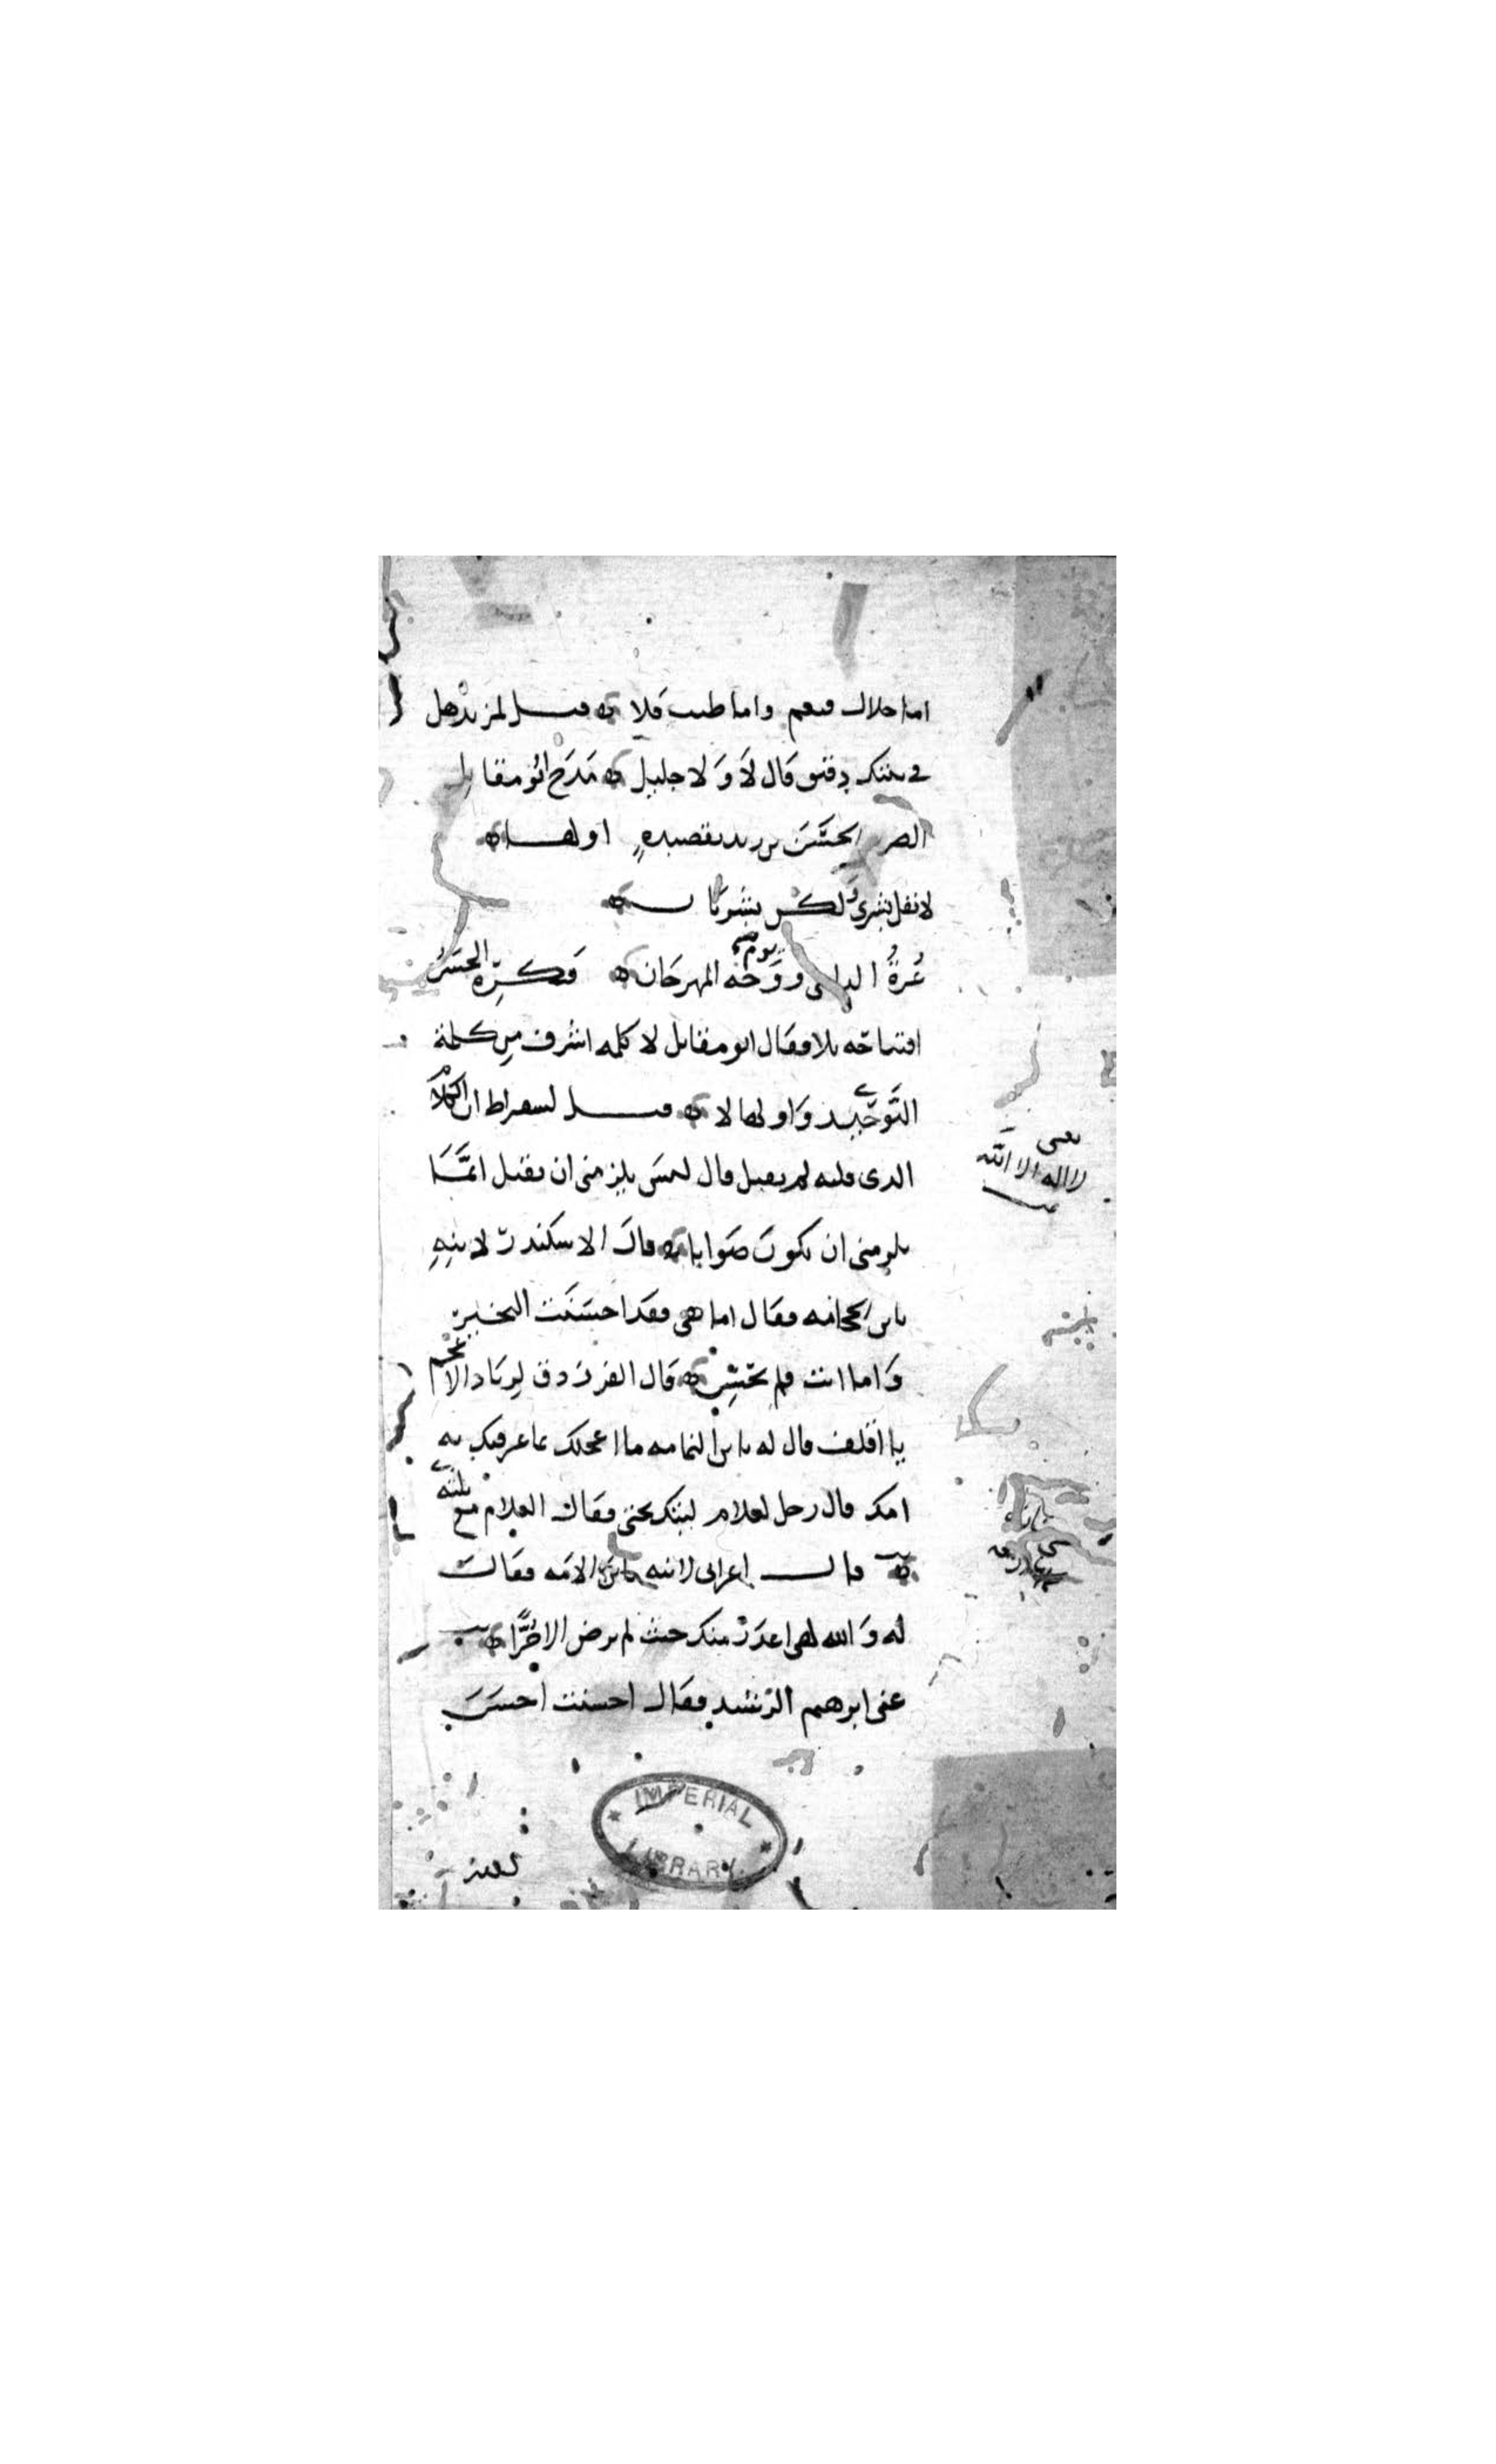 اما حلال فنعم واما طيب فلا ه قيل لمزبد هل
في بيتك دقيق قال لا ولا جليل ه مدح ابو مقاتل
الضرير الحسن بن زيد بقصيدة اولها ه
لا تقل بشرى ولكن بشريان ه
غرة الداعي ووجه يوم المهرجان ه فكره الحسن
افتتاحه بلا فقال ابو مقاتل لا كلمة اشرف من كلمة
التوحيد واولها لا ه قيل لسقراط ان الكلام
يعنى
لا اله الا الله
الذي قلته لم يقبل قال ليس يلزمني ان يقبل انما
يلزمني ان يكون صوابا ه قال الاسكندر لابنه
يابن الحجامة فقال اما هي فقد احسنت التخير
واما انت فلم تحسن ه قال الفرزدق لزياد الاعجم
يا اقلف قال له يابن النمامة ما اعجلك بما عرفتك به
امك قال رجل لغلام لبيتك يحيى فقال الغلام مع
ه قال اعرابي لابنه يابن الامة فقال
له والله لهي اعذر منك حيث لم ترض الا حرا ه
غنى ابرهيم الرشيد فقال احسنت احسن
IMPERIAL
LIBRARY